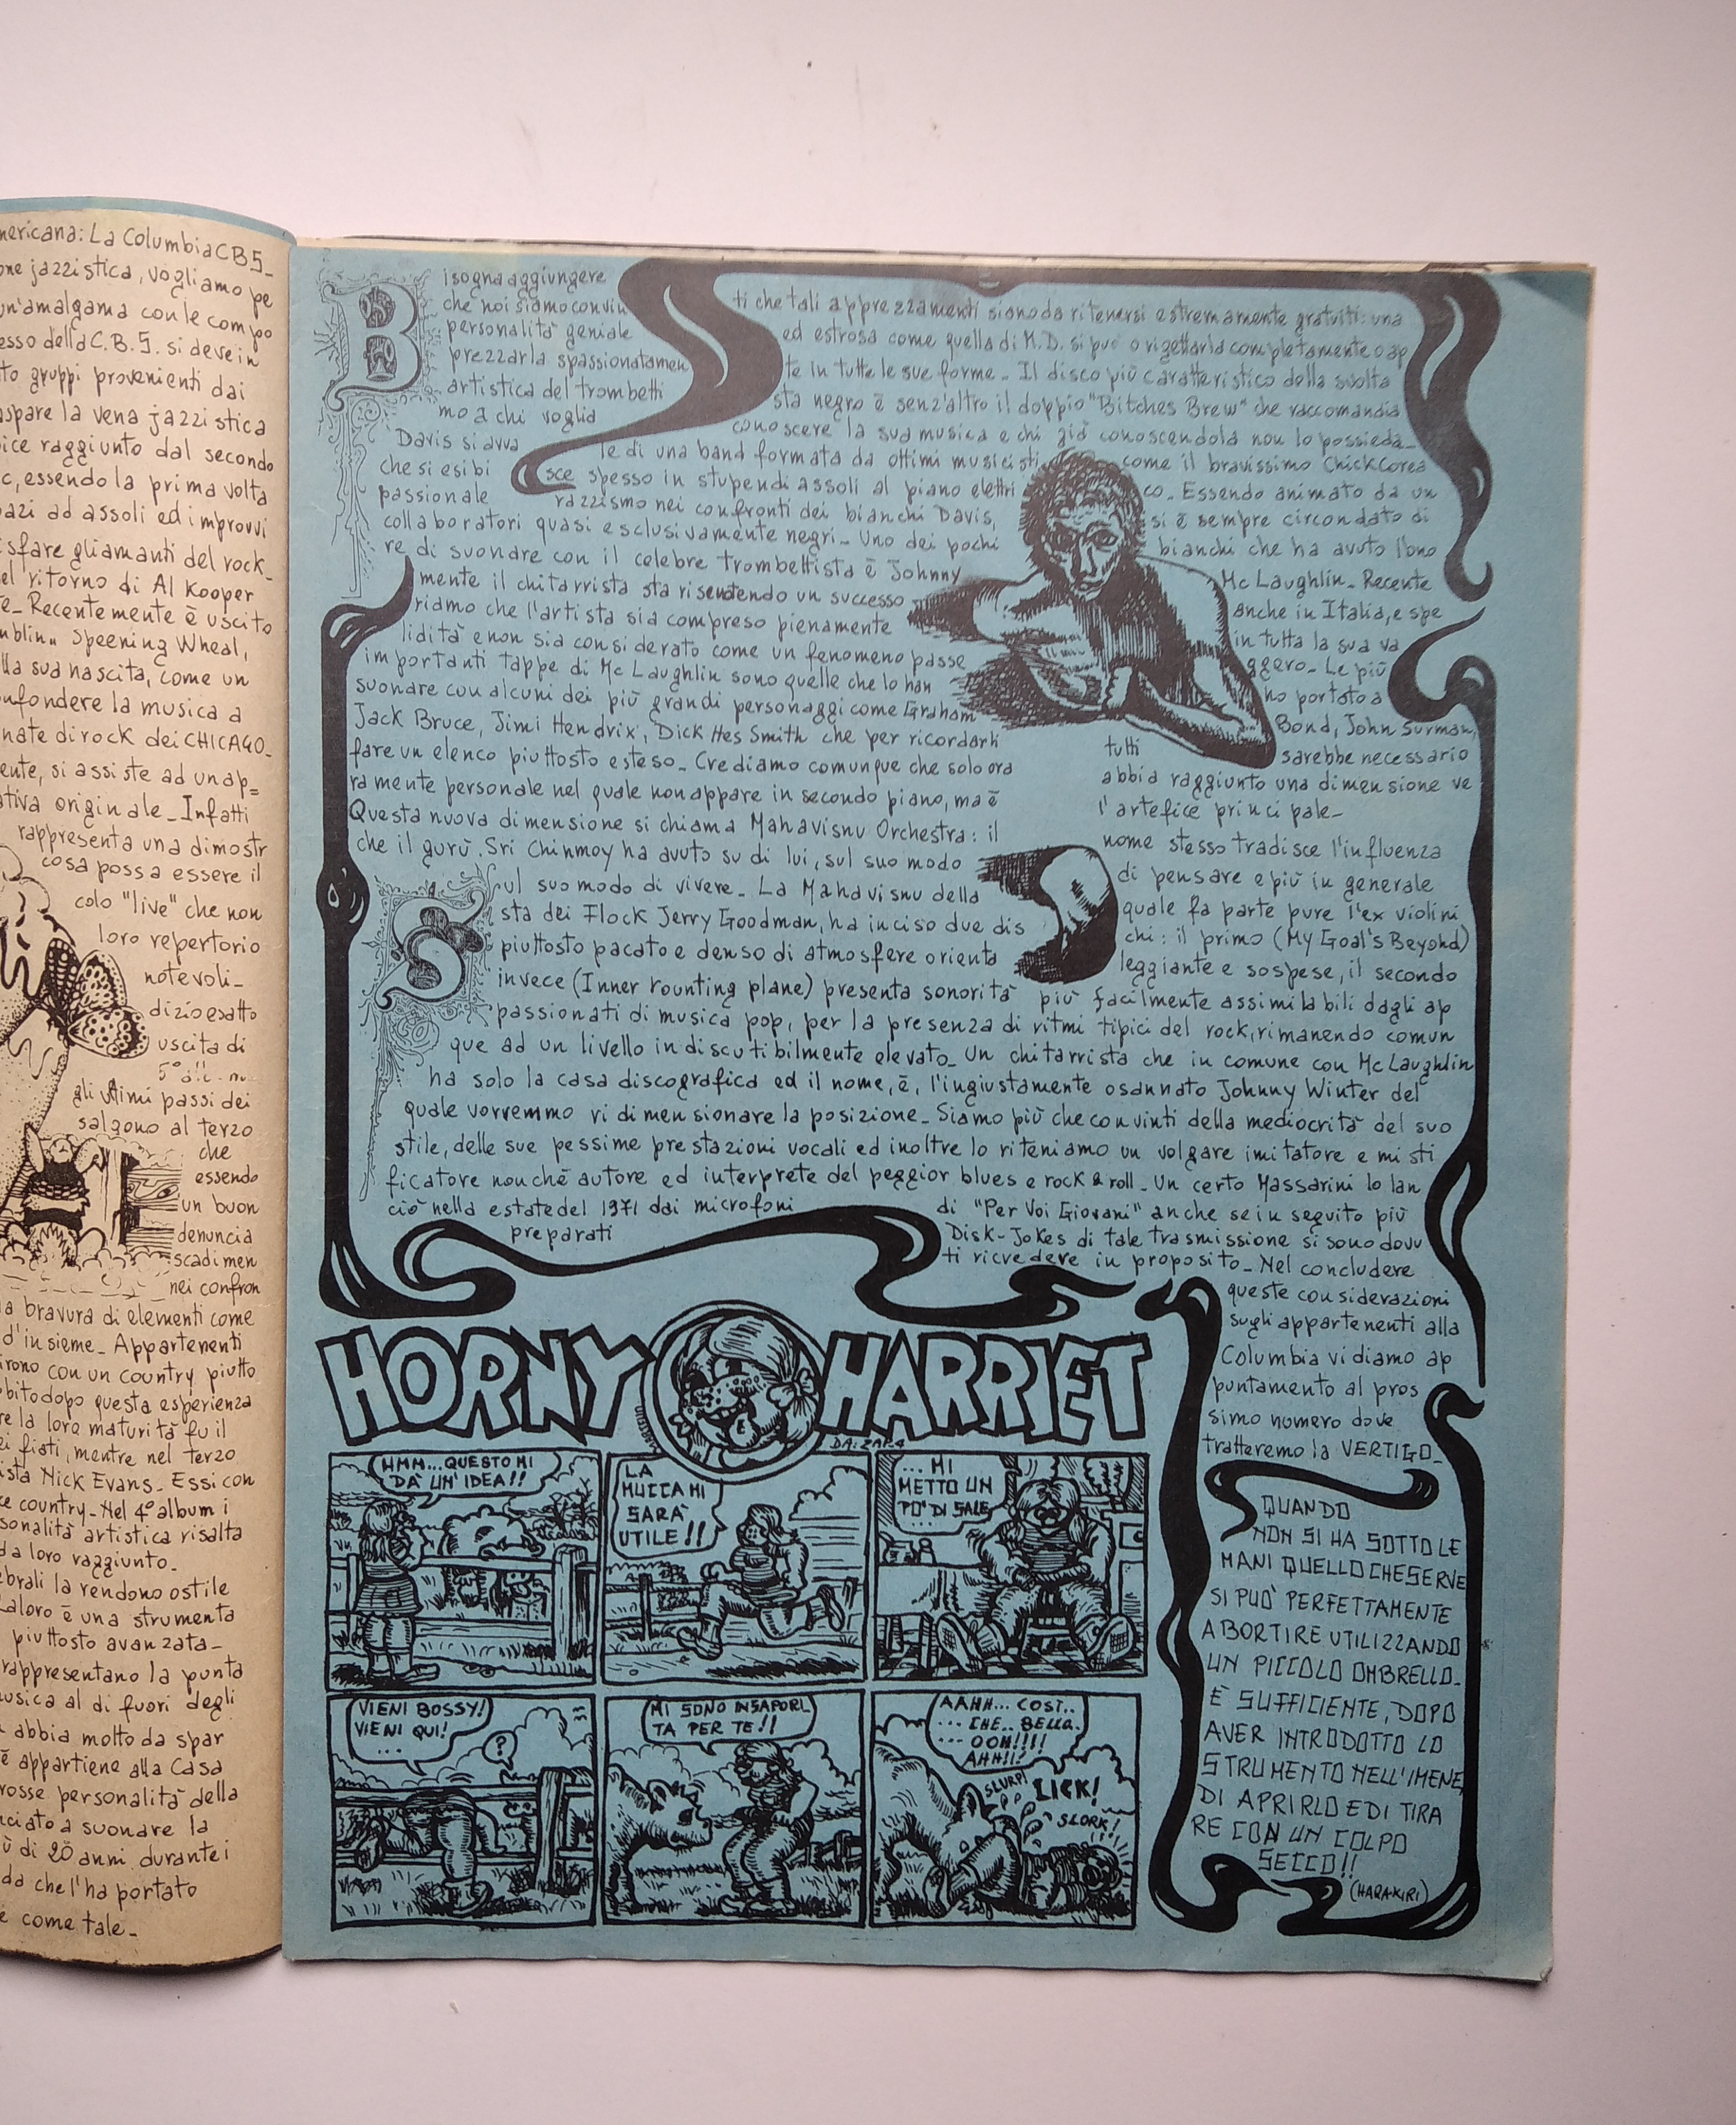 mericana: La Columbia CBS_
one jazzistica, vogliamo pe
un'amalgama con le compo
esso della C.B.S. si deve in
to gruppi provenienti dai
aspare la vena jazzistica
ice raggiunto dal secondo
c, essendo la prima volta
azi ad assoli ed improvvi
isfare gli amanti del rock_
el ritorno di Al Kooper
te_ Recentemente è uscito
mblin„ Speening Wheal,
lla sua nascita, come un
nfondere la musica a
nate di rock dei CHICAGO_
ente, si assiste ad un ap=
ativa originale_ Infatti
rappresenta una dimostr
cosa possa essere il
colo "live" che non
loro repertorio
notevoli_
dizio esatto
uscita di
gli ultimi passi dei
salgono al terzo
che
essendo
un buon
denuncia
scadimen
nei confron
la bravura di elementi come
d'insieme_ Appartenenti
irono con un country piutto
bito dopo questa esperienza
re la loro maturità fu il
ei fiati, mentre nel terzo
ista Nick Evans. Essi con
ce country_ Nel 4° album i
sonalità artistica risalta
da loro raggiunto_
ebrali la rendono ostile
La loro è una strumenta
piuttosto avanzata_
rappresentano la punta
musica al di fuori degli
abbia molto da spar
è appartiene alla Casa
rosse personalità della
nciato a suonare la
ù di 20 anni durante i
da che l'ha portato
e come tale_
Bisogna aggiungere
che noi siamo convin ti che tali apprezzamenti siano da ritenersi estremamente gratuiti: una
personalità geniale ed estrosa come quella di M.D. si può o rigettarla completamente o ap
prezzarla spassionatamen te in tutte le sue forme_ Il disco più caratteristico della svolta
artistica del trombetti sta negro è senz'altro il doppio "Bitches Brew" che raccomandia
mo a chi voglia conoscere la sua musica e chi già conoscendola non lo possieda_
Davis si avva le di una band formata da ottimi musicisti come il bravissimo Chick Corea
che si esibi sce spesso in stupendi assoli al piano elettri co_ Essendo animato da un
passionale razzismo nei confronti dei bianchi Davis, si è sempre circondato di
collaboratori quasi esclusivamente negri_ Uno dei pochi bianchi che ha avuto l'ono
re di suonare con il celebre trombettista è Johnny Mc Laughlin_ Recente
mente il chitarrista sta risentendo un successo anche in Italia, e spe
riamo che l'artista sia compreso pienamente in tutta la sua va
lidità e non sia considerato come un fenomeno passe ggero_ Le più
importanti tappe di Mc Laughlin sono quelle che lo han no portato a
suonare con alcuni dei più grandi personaggi come Graham Bond, John Surman,
Jack Bruce, Jimi Hendrix, Dick Hes Smith che per ricordarli tutti sarebbe necessario
fare un elenco piuttosto esteso_ Crediamo comunque che solo ora abbia raggiunto una dimensione ve
ramente personale nel quale non appare in secondo piano, ma è l'artefice principale_
Questa nuova dimensione si chiama Mahavisnu Orchestra: il nome stesso tradisce l'influenza
che il gurù Sri Chinmoy ha avuto su di lui, sul suo modo di pensare e più in generale
Sul suo modo di vivere_ La Mahavisnu della quale fa parte pure l'ex violini
sta dei Flock Jerry Goodman, ha inciso due dis chi: il primo (My Goal's Beyond)
piuttosto pacato e denso di atmosfere orienta leggiante e sospese, il secondo
invece (Inner rounting plane) presenta sonorità più facilmente assimilabili dagli ap
passionati di musica pop, per la presenza di ritmi tipici del rock, rimanendo comun
que ad un livello indiscutibilmente elevato_ Un chitarrista che in comune con Mc Laughlin
ha solo la casa discografica ed il nome, è, l'ingiustamente osannato Johnny Winter del
quale vorremmo ridimensionare la posizione_ Siamo più che convinti della mediocrità del suo
stile, delle sue pessime prestazioni vocali ed inoltre lo riteniamo un volgare imitatore e misti
ficatore nonché autore ed interprete del peggior blues e rock & roll_ Un certo Massarini lo lan
ciò nella estate del 1971 dai microfoni di "Per Voi Giovani" anche se in seguito più
preparati Disk-Jokes di tale trasmissione si sono dovu
ti ricredere in proposito_ Nel concludere
queste considerazioni
sugli appartenenti alla
Columbia vi diamo ap
puntamento al pros
simo numero dove
tratteremo la VERTIGO_
HORNY HARRIET
DA: ZAP.4
HMM...QUESTO MI
DA' UN'IDEA!!
LA
MUCCA MI
SARA'
UTILE!!
...MI
METTO UN
PO' DI SALE
...
VIENI BOSSY!
VIENI QUI!
...
?
MI SONO INSAPORI
TA PER TE!!
AAHH... COSI..
... CHE.. BELLO.
... OOH!!!!
AHH!!!
SLURP!
LICK!
SLORK!
QUANDO
NON SI HA SOTTO LE
MANI QUELLO CHE SERVE
SI PUO' PERFETTAMENTE
ABORTIRE UTILIZZANDO
UN PICCOLO OMBRELLO_
È SUFFICIENTE, DOPO
AVER INTRODOTTO LO
STRUMENTO NELL'IMENE,
DI APRIRLO E DI TIRA
RE CON UN COLPO
SECCO!!
(HARA-KIRI)